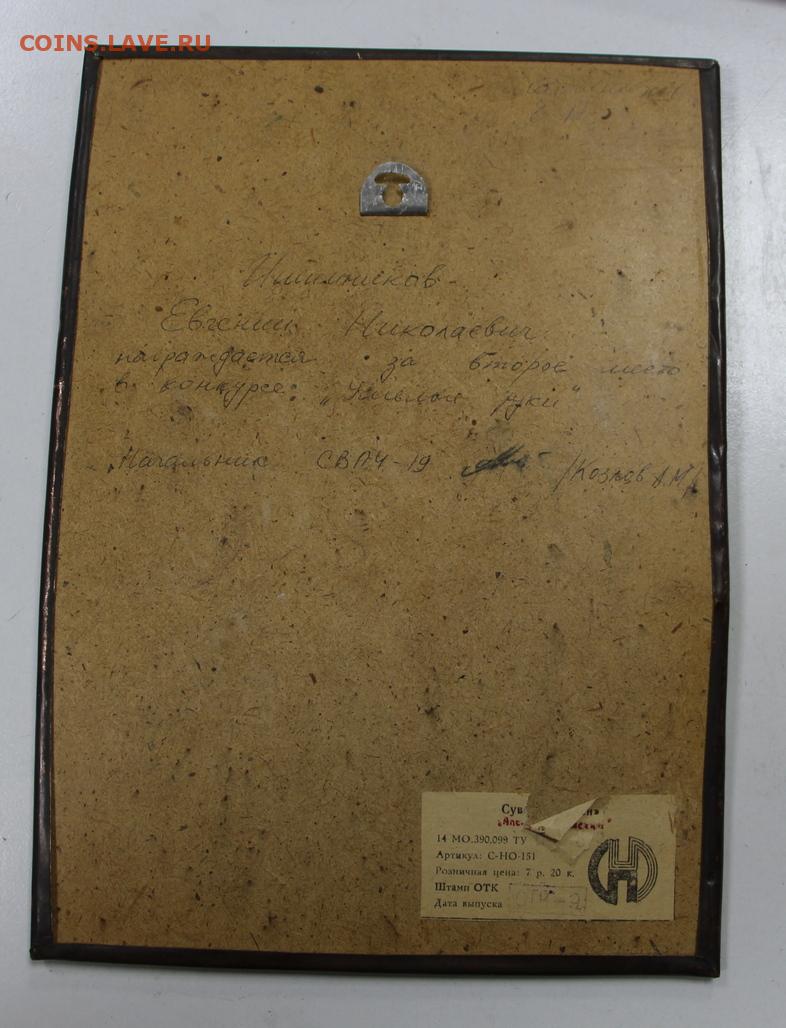 COINS.LAVE.RU
Евгений Николаевич
награждается за второе место
в конкурсе: „Умелые руки"
Начальник СВПЧ-19 /Козлов А.М/
14 МО.390.099 ТУ
Артикул: С-НО-151
Розничная цена: 7 р. 20 к.
Штамп ОТК
Дата выпуска